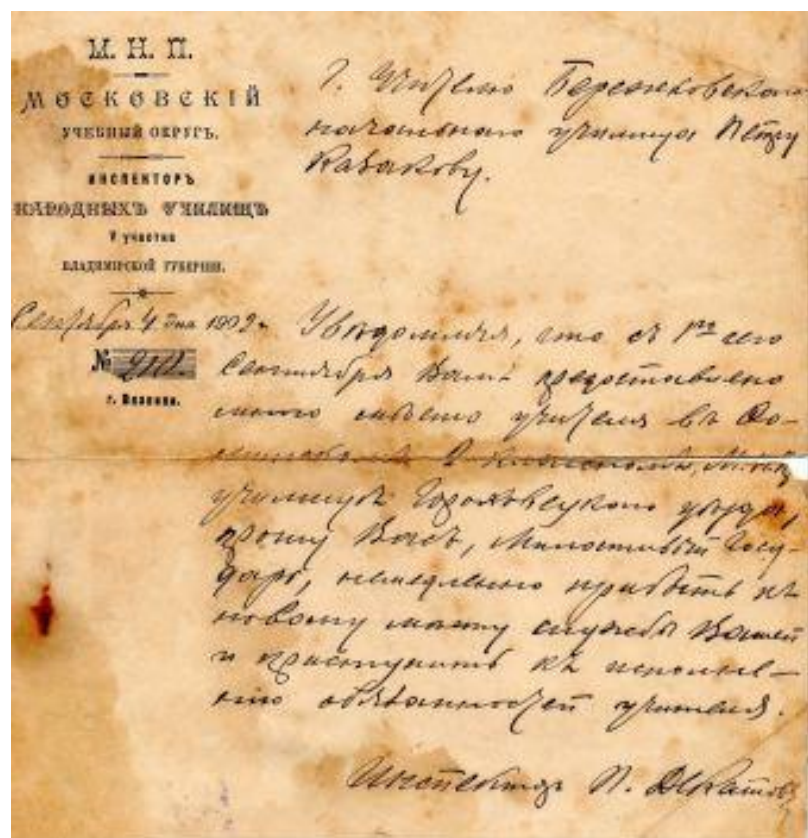 М. Н. П.
МОСКОВСКІЙ
УЧЕБНЫЙ ОКРУГЪ.
ИНСПЕКТОРЪ
НАРОДНЫХЪ УЧИЛИЩЪ
V участка
ВЛАДИМИРСКОЙ ГУБЕРНІИ.
Сентября 4 дня 1902 г.
№ 210
г. Вязники.
Г. Учителю
начальнаго училища Петру
Казакову.
Увѣдомляя, что съ 1го сего
Сентября Вамъ предоставлено
мѣсто учителя въ
2 классномъ, М.
училищѣ Гороховецкаго уѣзда,
прошу Васъ, Милостивый Госу-
дарь, немедленно прибыть къ
новому мѣсту службы Вашей
и приступить къ исполне-
нію обязанностей учителя.
Инспекторъ П.